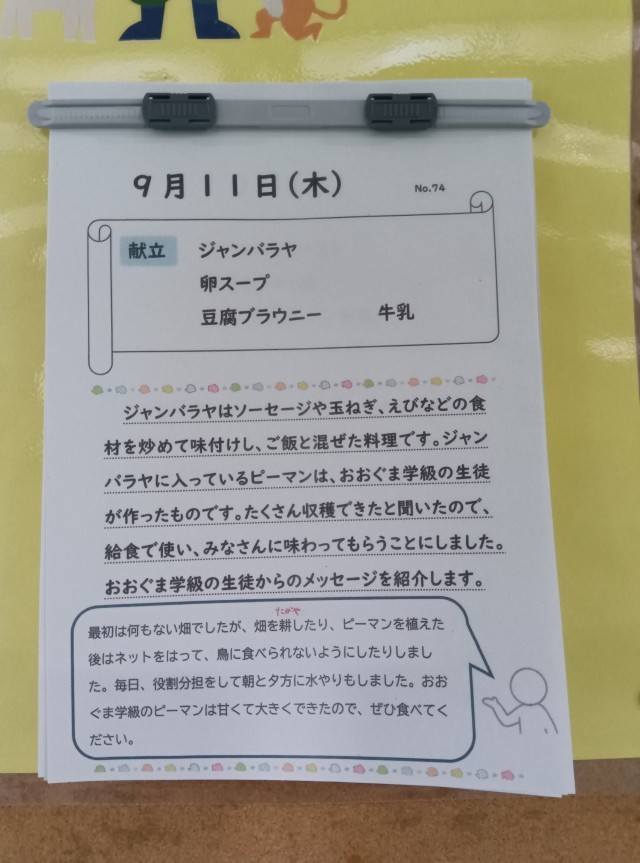 9月11日(木)
No.74
献立 ジャンバラヤ
卵スープ
豆腐ブラウニー 牛乳
ジャンバラヤはソーセージや玉ねぎ、えびなどの食
材を炒めて味付けし、ご飯と混ぜた料理です。ジャン
バラヤに入っているピーマンは、おおぐま学級の生徒
が作ったものです。たくさん収穫できたと聞いたので、
給食で使い、みなさんに味わってもらうことにしました。
おおぐま学級の生徒からのメッセージを紹介します。
たがや
最初は何もない畑でしたが、畑を耕したり、ピーマンを植えた
後はネットをはって、鳥に食べられないようにしたりしまし
た。毎日、役割分担をして朝と夕方に水やりもしました。おお
ぐま学級のピーマンは甘くて大きくできたので、ぜひ食べてく
ださい。